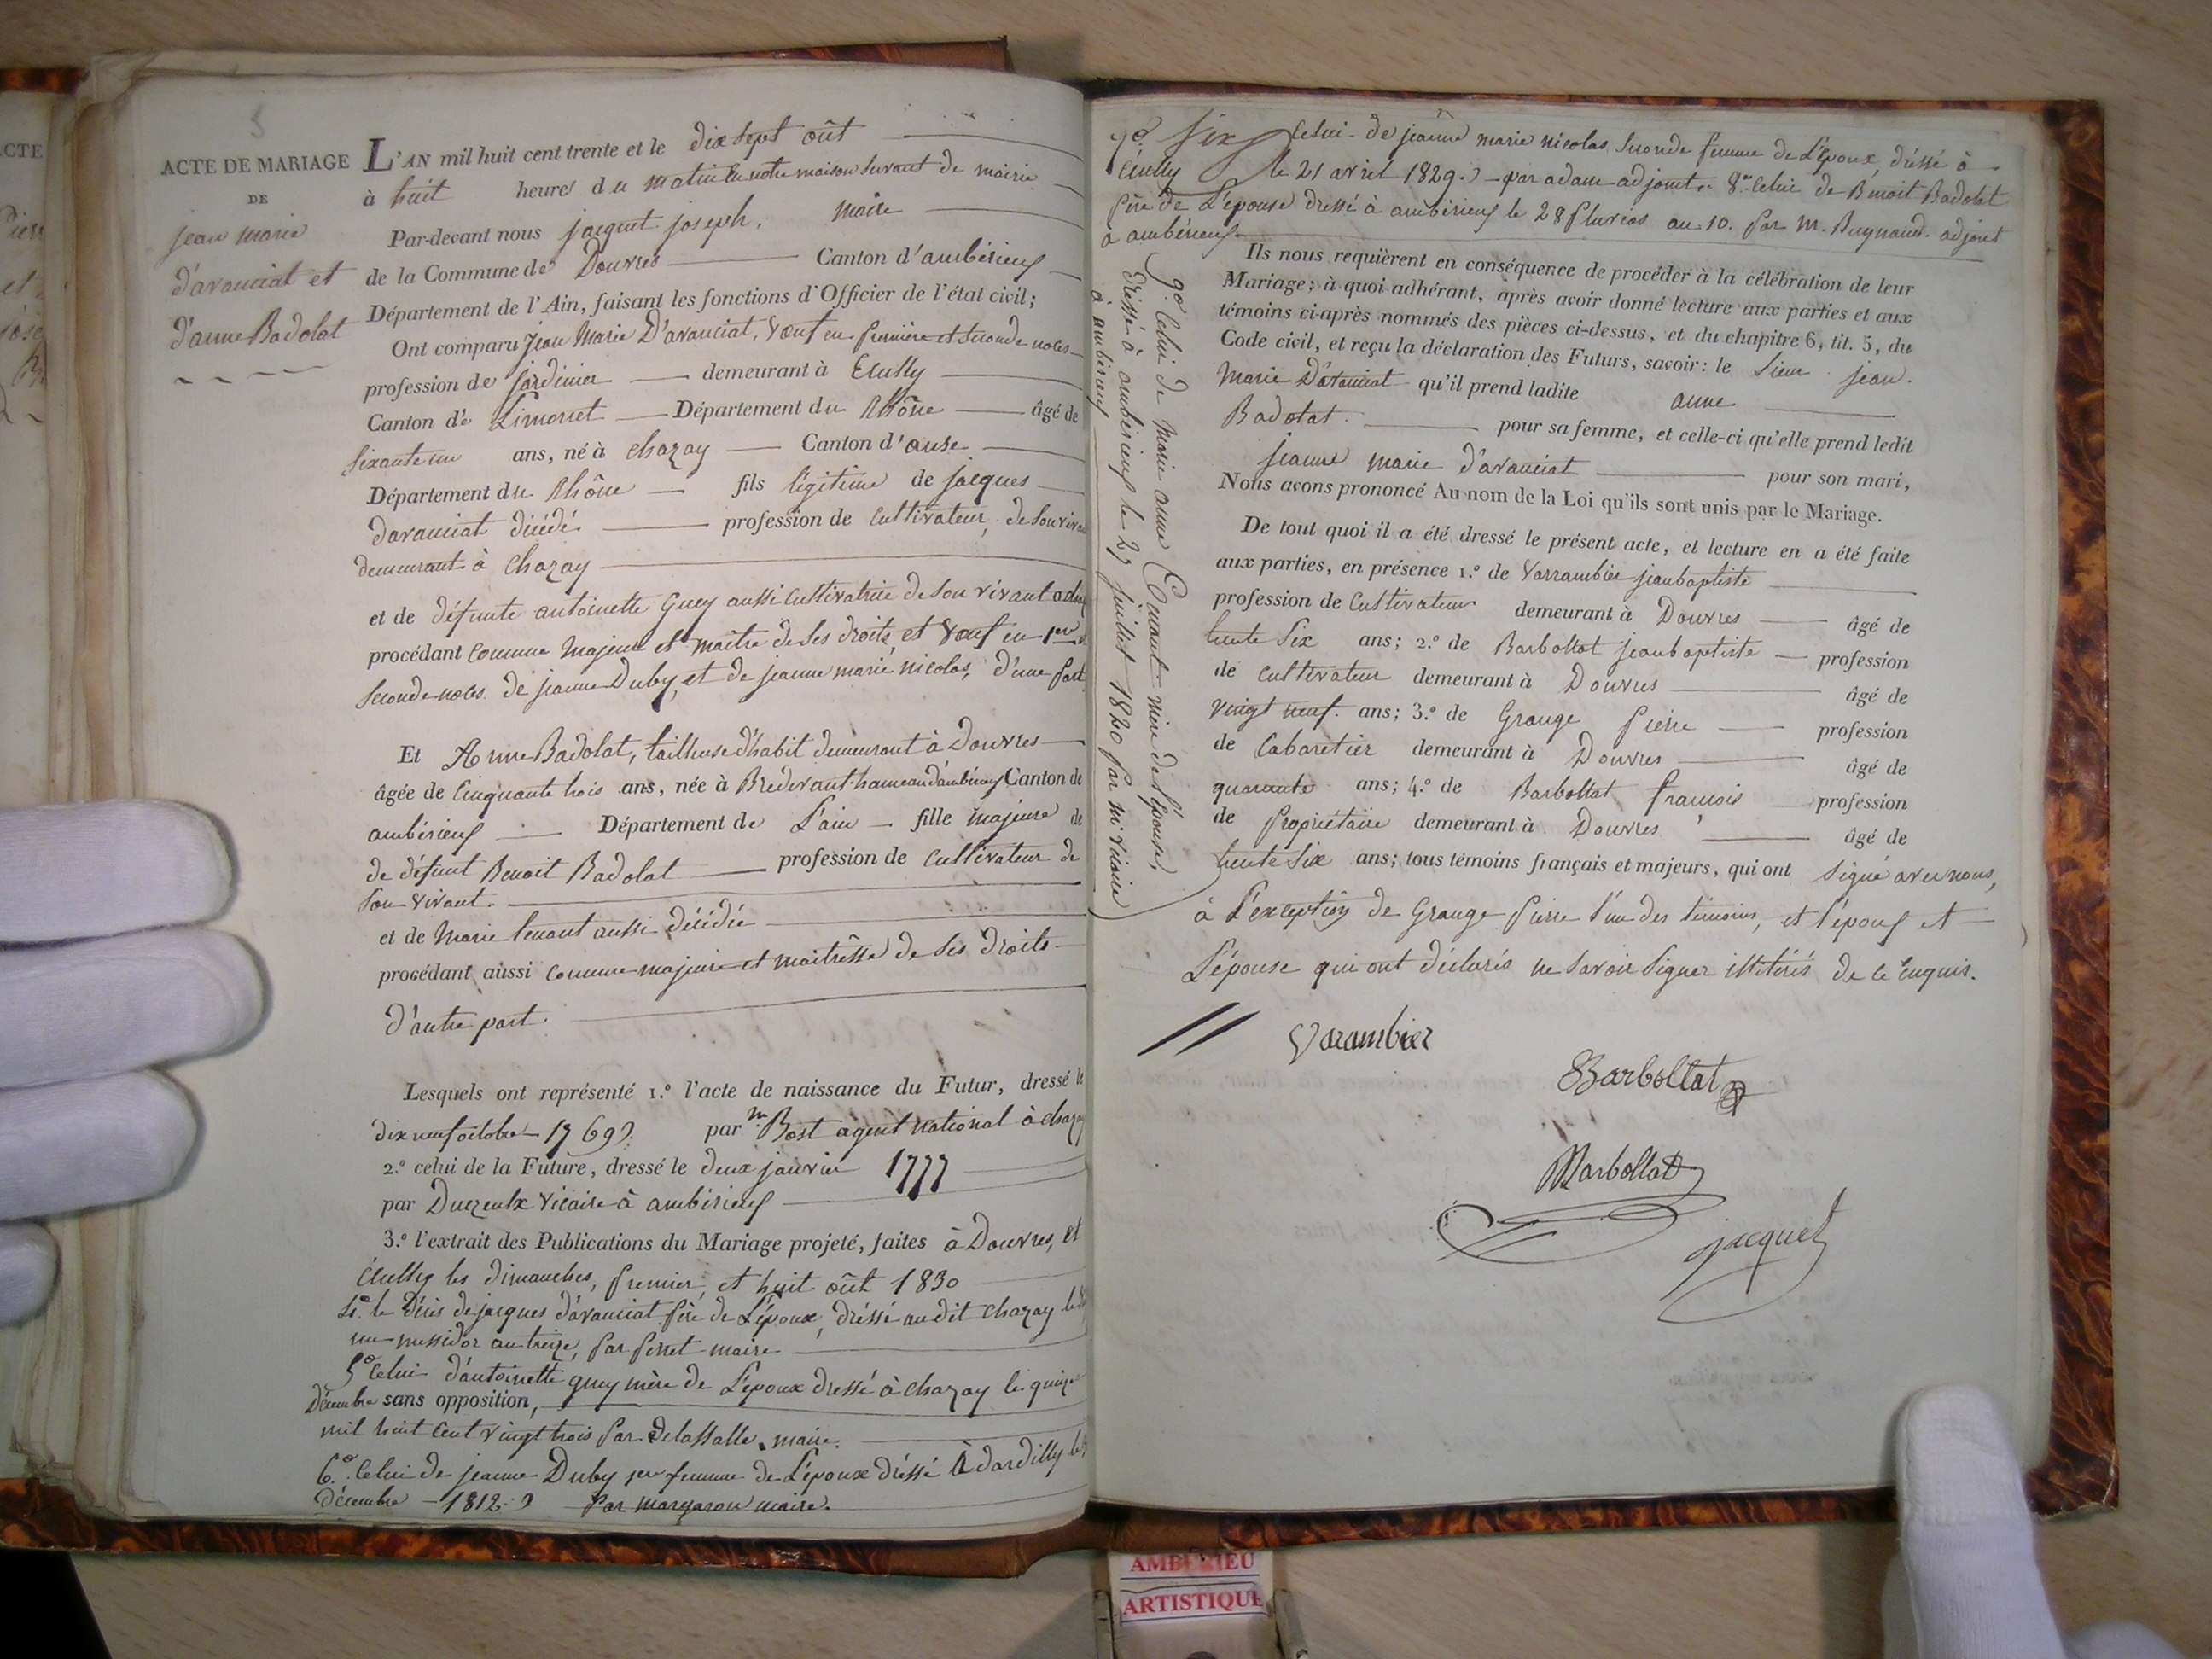 ACTE DE MARIAGE
DE
jean marie
d'avanciat et
d'anne Badolat
L'AN mil huit cent trente et le dix sept oût
à huit heures du matin En notre maison servant de mairie
Par-devant nous jacquet joseph, Maire
de la Commune de Douvres Canton d'ambérieuf
Département de l'Ain, faisant les fonctions d'Officier de l'état civil;
Ont comparu jean Marie D'avanciat, Veuf en premiere et seconde noces
profession de jardinier demeurant à Ecully
Canton de Limonest Département du Rhône âgé de
sixante un ans, né à Chazay Canton d'anse
Département du Rhône fils légitime de jacques
davanciat décédé profession de Cultivateur, de son vivant
demeurant à Chazay
et de défunte antoinette Guey aussi Cultivatrice de son vivant
procédant comme Majeur et maître de ses droits, et Veuf en 1ere
seconde noces de jeanne Duby, et de jeanne marie nicolas, d'une part
Et Anne Badolat, tailleuse d'habit demeurant à Douvres
âgée de Cinquante trois ans, née à Bredevant hameau d'ambérieuf Canton de
ambérieuf Département de L'ain fille majeure de
de défunt Benoit Badolat profession de Cultivateur de
son vivant.
et de Marie tenant aussi décédée
procédant aussi comme majeure et maitresse de ses droits
d'autre part.
Lesquels ont représenté 1.º l'acte de naissance du Futur, dressé le
dix neuf octobre 1769 par Mr Bost agent national à chazay
2.º celui de la Future, dressé le deux janvier 1777
par Ducreulx Vicaire à ambérieuf
3.º l'extrait des Publications du Mariage projeté, faites à Douvres, et
Écully les dimanches, premier, et huit oût 1830
4.º le Décès de jacques d'avanciat père de L'époux, dréssé au dit Chazay le
un messidor an treize, par perret maire
5º Celui d'antoinette guey mère de L'époux dressé à chazay le quinze
Décembre sans opposition,
mil huit Cent vingt trois par Delassalle maire.
6.º Celui de jeanne Duby 1ere femme de L'époux dréssé à dardilly le
décembre 1812 Par margaron maire.
7º Celui de jeanne marie nicolas seconde femme de L'époux, dréssé à
Écully le 21 avril 1829 par adam adjoint. 8º Celui de Benoit Badolat
père de L'épouse dressé à ambérieuf le 28 pluvios an 10. par M. Reynaud adjoint
à ambérieuf.
9º Celui de Marie anne tenant mère de L'épouse,
dressé à ambérieuf le 27 juillet 1820 par m. vicaire
à ambérieuf
Ils nous requièrent en conséquence de procéder à la célébration de leur
Mariage; à quoi adhérant, après avoir donné lecture aux parties et aux
témoins ci-après nommés des pièces ci-dessus, et du chapitre 6, tit. 5, du
Code civil, et reçu la déclaration des Futurs, savoir: le sieur jean
Marie D'avanciat qu'il prend ladite anne
Badolat. pour sa femme, et celle-ci qu'elle prend ledit
jeanne marie d'avanciat pour son mari,
Nous avons prononcé Au nom de la Loi qu'ils sont unis par le Mariage.
De tout quoi il a été dressé le présent acte, et lecture en a été faite
aux parties, en présence 1.º de Varrambier jeanbaptiste
profession de Cultivateur demeurant à Douvres âgé de
trente six ans; 2.º de Barbollat jeanbaptiste profession
de Cultivateur demeurant à Douvres âgé de
vingt neuf ans; 3.º de Grange pierre profession
de Cabaretier demeurant à Douvres âgé de
quarante ans; 4.º de Barbollat françois profession
de propriétaire demeurant à Douvres âgé de
trente six ans; tous témoins français et majeurs, qui ont signé avec nous,
à L'exception de Grange pierre l'un des témoins, et l'époux et
L'épouse qui ont déclarés ne savoir signer illitérés de ce Enquis.
Varambier
Barbollat
Barbollat
jacquet
AMBERIEU
ARTISTIQUE